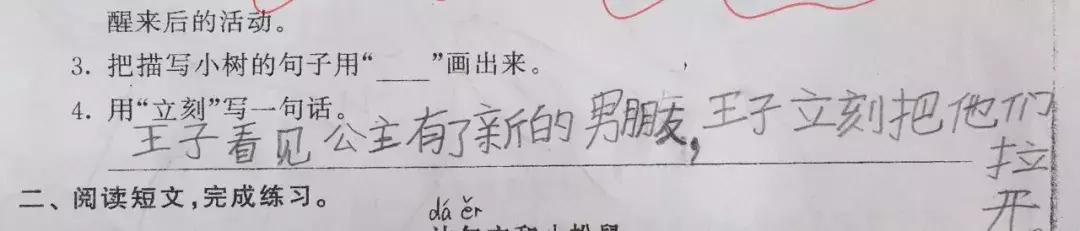 醒来后的活动。
3. 把描写小树的句子用“____”画出来。
4. 用“立刻”写一句话。
王子看见公主有了新的男朋友,王子立刻把他们
拉
开。
二、阅读短文,完成练习。
dá ěr